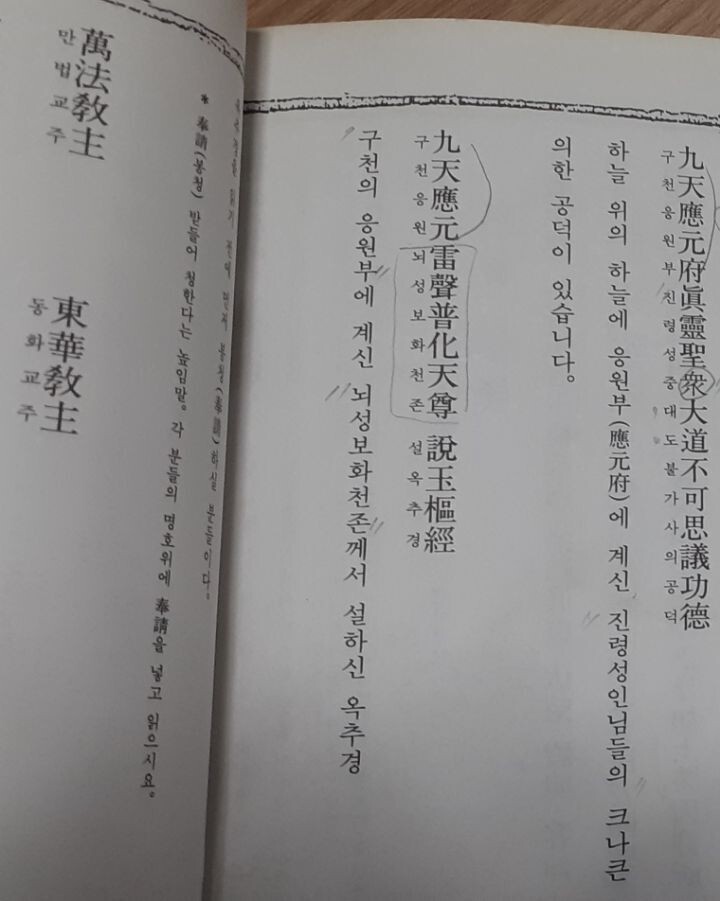 九天應元府眞靈聖衆大道不可思議功德
구천응원부친령성중대도불가사의공덕
하늘 위의 하늘에 응원부(應元府)에 계신 진령성인님들의 크나큰
의한 공덕이 있습니다.
九天應元雷聲普化天尊 說玉樞經
구천응원뇌성보화천존 설옥추경
구천의 응원부에 계신 뇌성보화천존께서 설하신 옥추경
읽기 전에 먼저 봉청(奉請)하실 분들이다.
* 奉請(봉청) 받들어 청한다는 높임말. 각 분들의 명호위에 奉請을 넣고 읽으시요.
萬法敎主 東華敎主
만법교주 동화교주